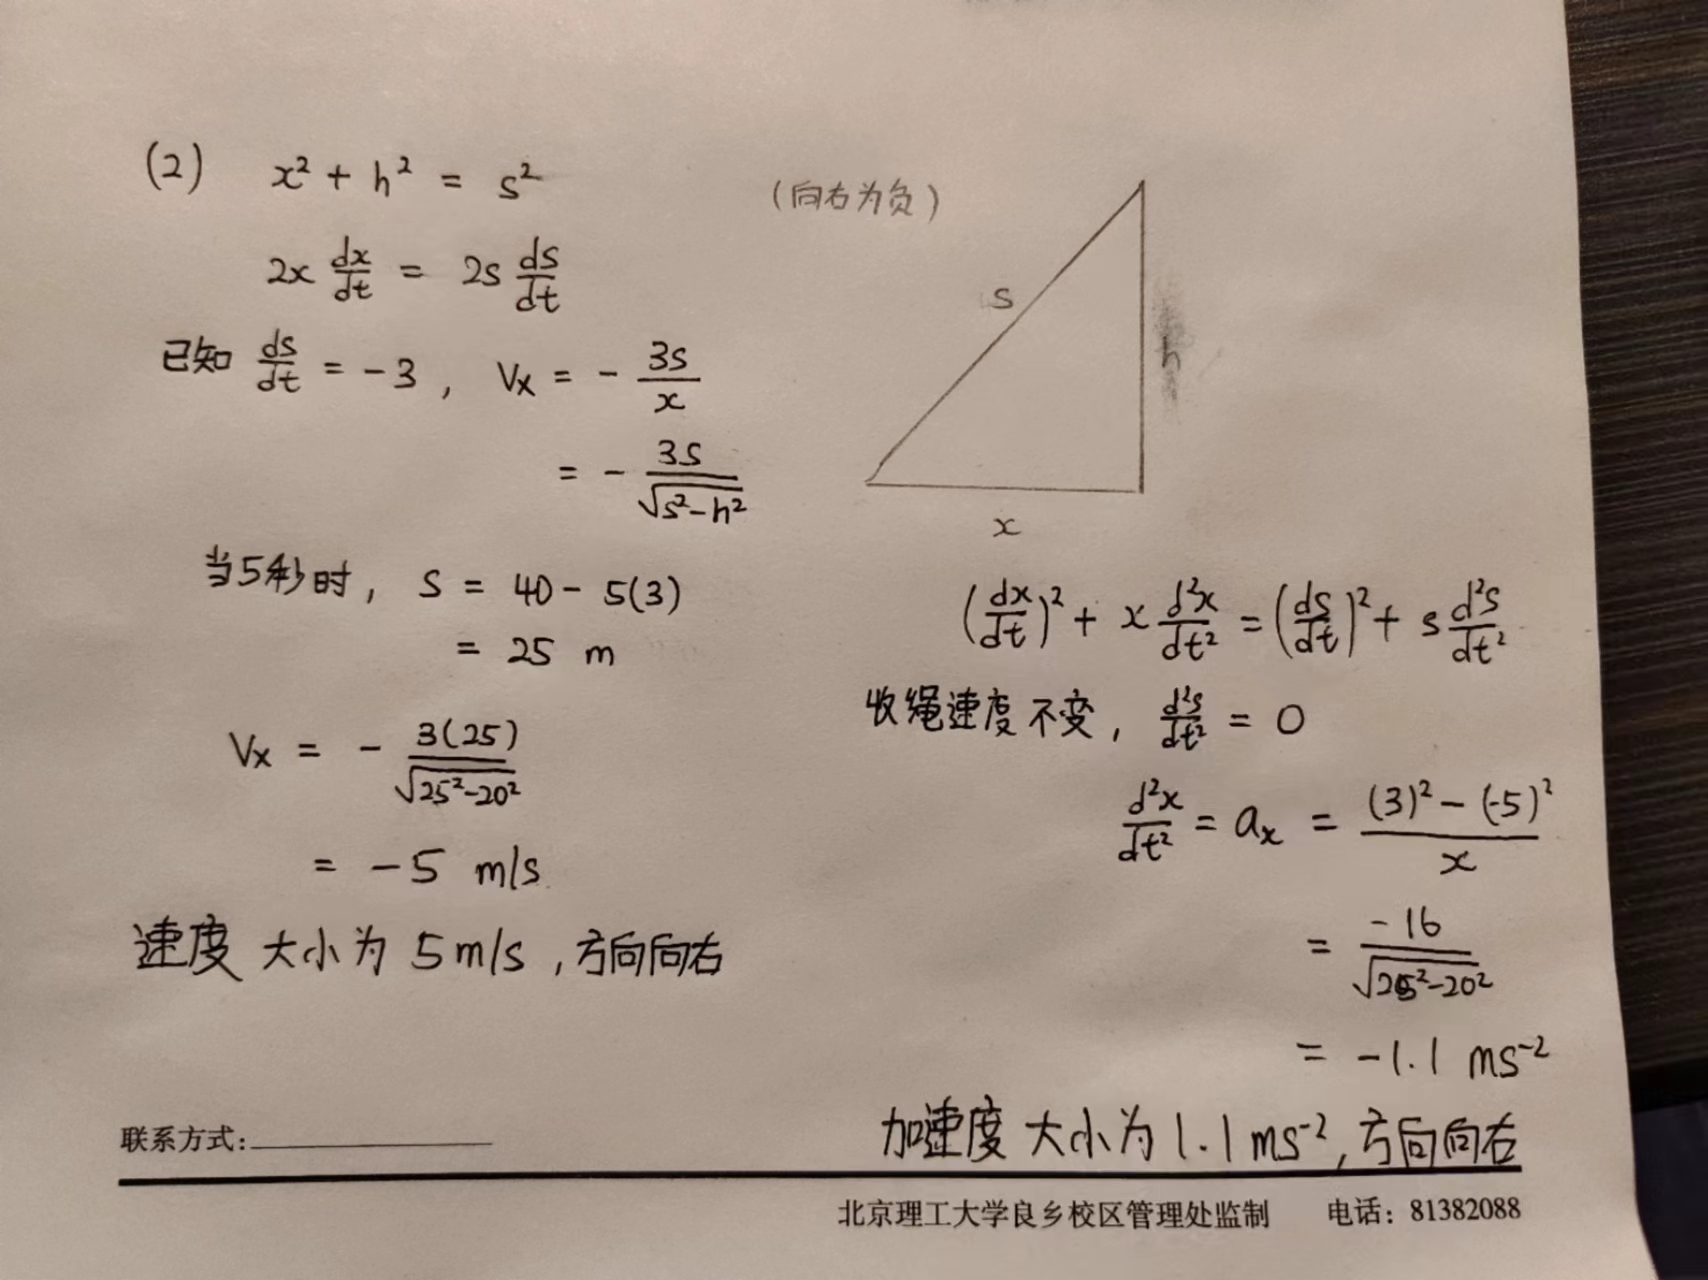 (2) x² + h² = s²
2x dx/dt = 2s ds/dt
已知 ds/dt = -3, Vx = - 3s/x
= - 3s/√(s²-h²)
当5秒时, S = 40 - 5(3)
= 25 m
Vx = - 3(25)/√(25²-20²)
= -5 m/s
速度 大小为 5 m/s, 方向向右
(向右为负)
s
h
x
(dx/dt)² + x d²x/dt² = (ds/dt)² + s d²s/dt²
收绳速度不变, d²s/dt² = 0
d²x/dt² = ax = ((3)² - (-5)²)/x
= -16/√(25²-20²)
= -1.1 ms⁻²
加速度 大小为 1.1 ms⁻², 方向向右
联系方式:
北京理工大学良乡校区管理处监制 电话：81382088